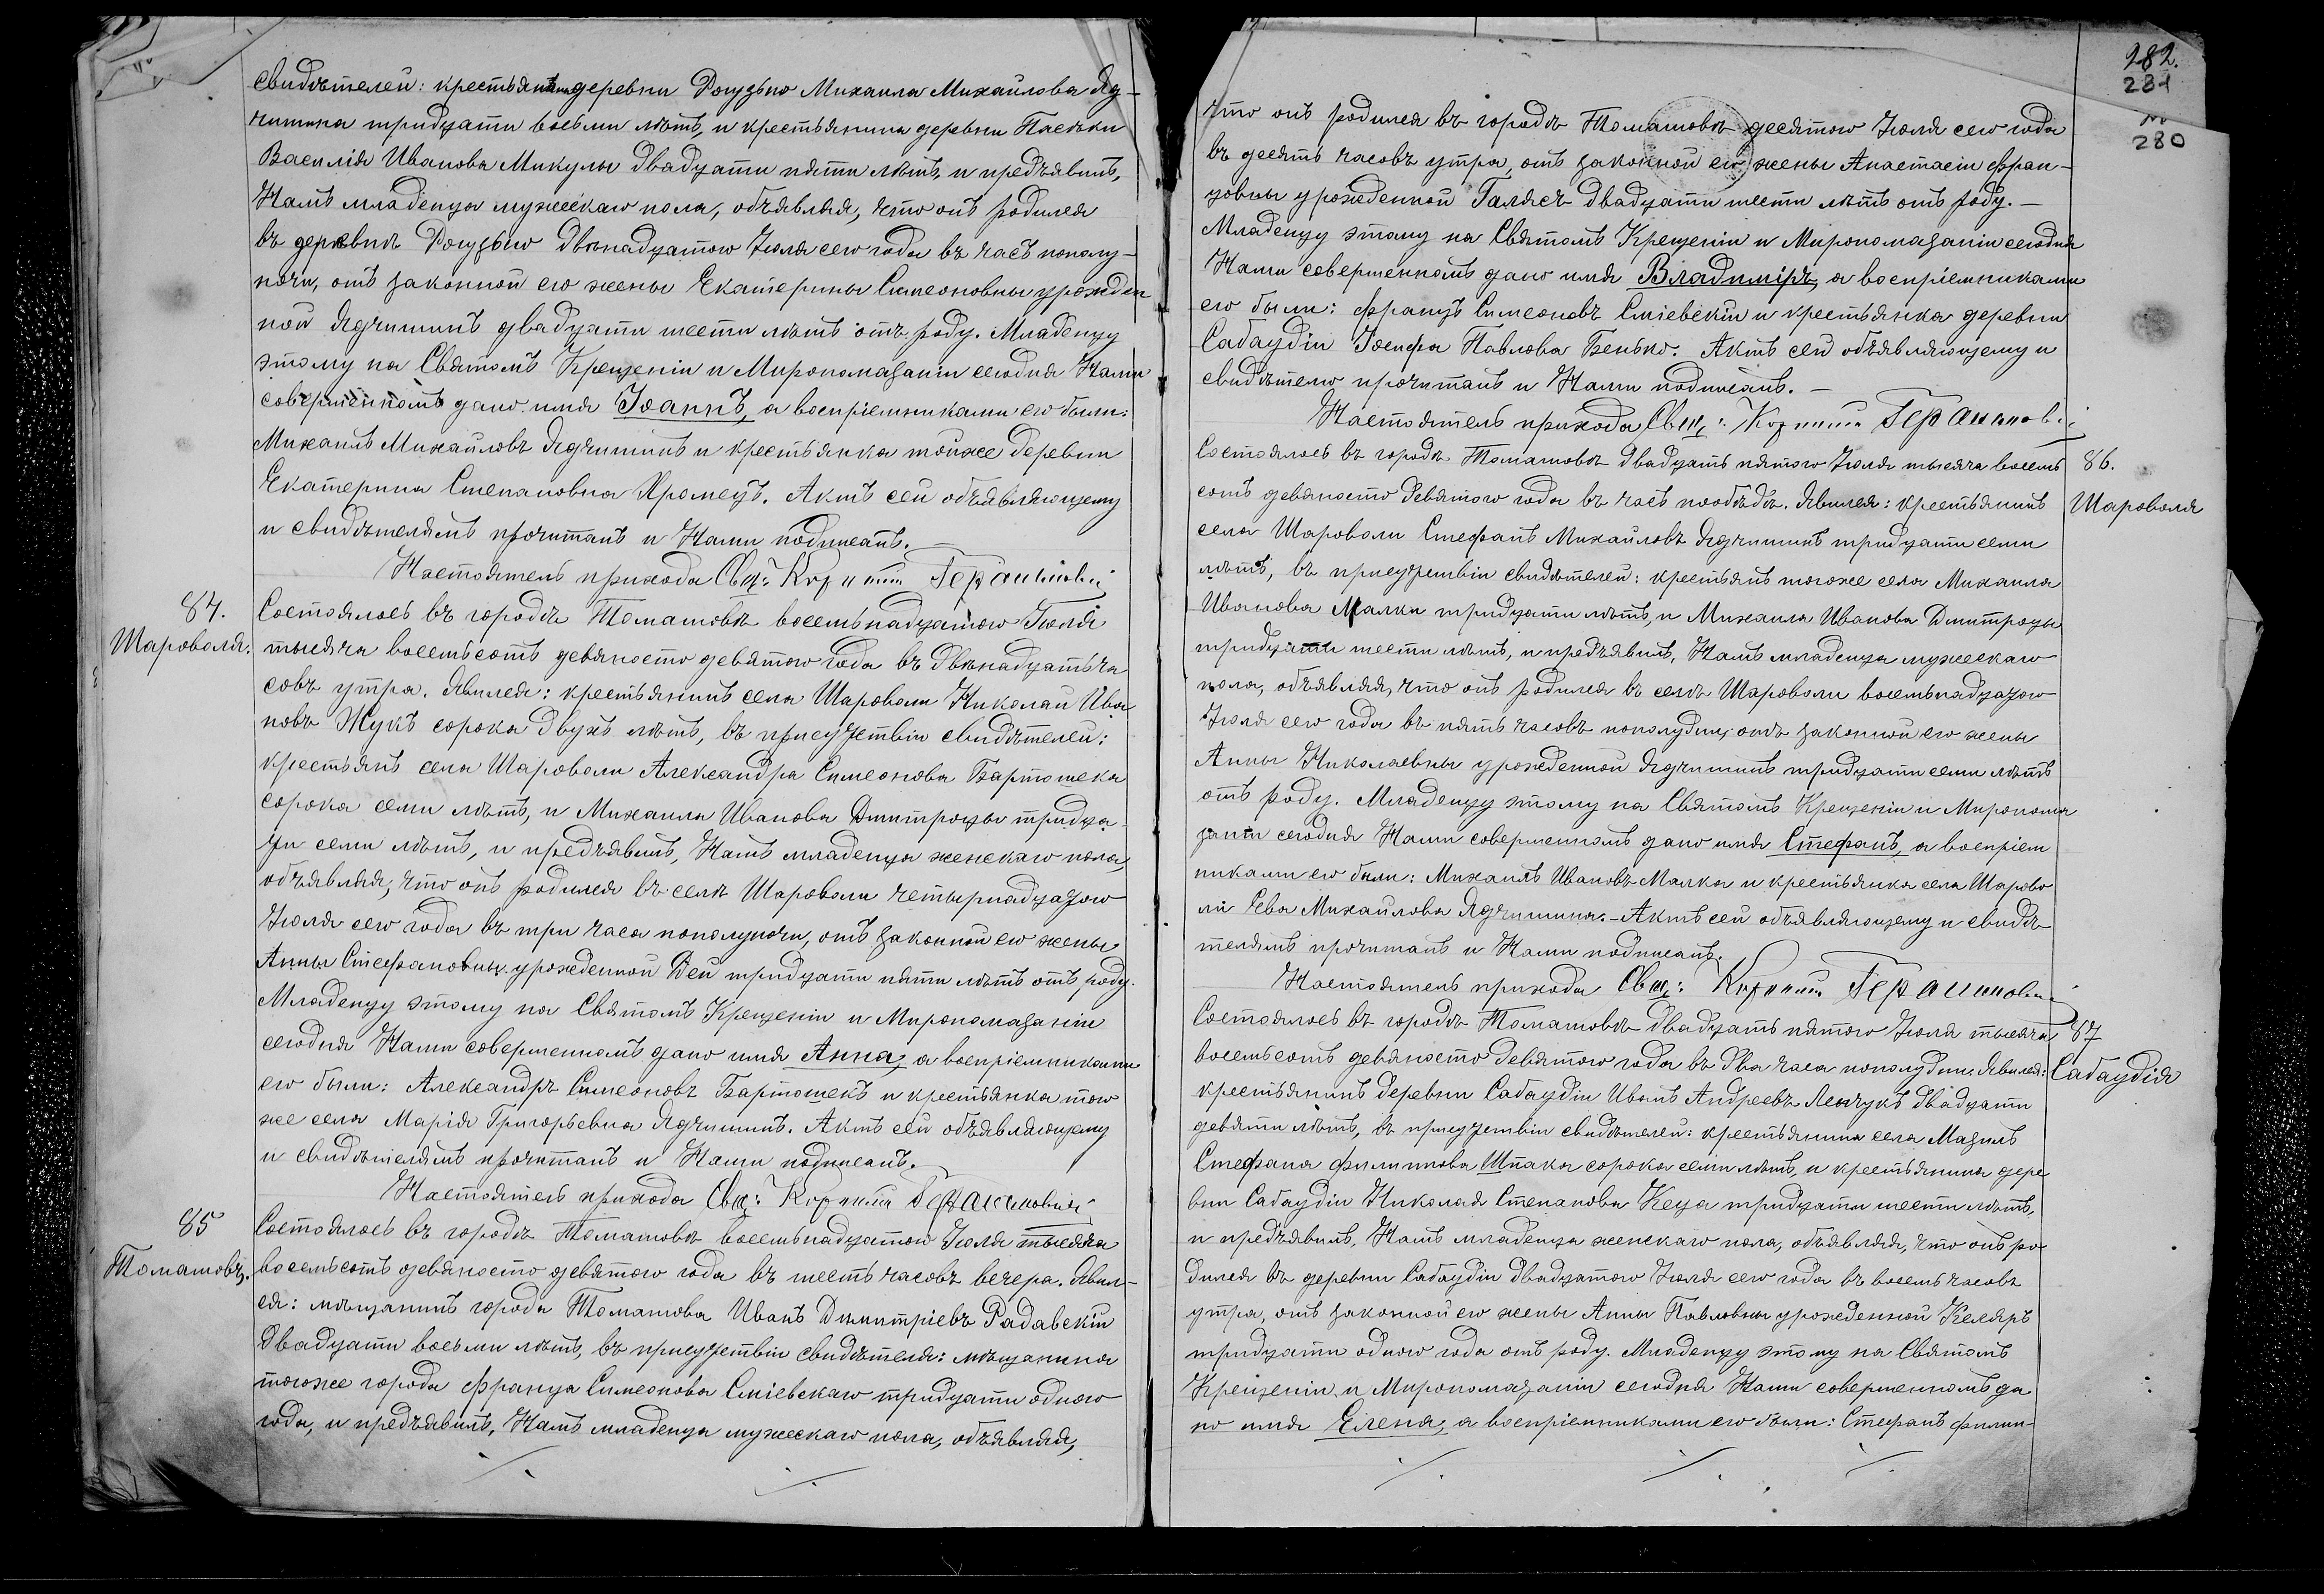 свидѣтелей: крестьянина деревни Рогузьно Михаила Михайлова Яд-
чишина тридцати восьми лѣтъ, и крестьянина деревни Пасѣки
Василія Иванова Микулы двадцати пяти лѣтъ, и предъявилъ,
Намъ младенца мужескаго пола, объявляя, что онъ родился
въ деревнѣ Рогузьно двѣнадцатого Іюля сего года въ часъ пополу-
ночи, отъ законной его жены Екатерины Симеоновны урожден
ной Ядчишинъ двадцати шести лѣтъ отъ роду. Младенцу
этому на Святомъ Крещеніи и Миропомазаніи сегодня Нами
совершенномъ дано имя Іоаннъ, а воспріемниками его были:
Михаилъ Михайловъ Ядчишинъ и крестьянка тойже деревни
Екатерина Степановна Кромецъ. Актъ сей объявляющему
и свидѣтелямъ прочитанъ и Нами подписанъ.—
Настоятель прихода Свщ:
84.
Шароволя.
Состоялось въ городѣ Томашовѣ восемьнадцатого Іюля
тысяча восемьсотъ девяносто девятого года въ двѣнадцать ча
совъ утра. Явился: крестьянинъ села Шароволи Николай Ива
новъ Жукъ сорока двухъ лѣтъ, въ присутствіи свидѣтелей:
крестьянъ села Шароволи Александра Симеонова Бартошека
сорока семи лѣтъ, и Михаила Иванова Дмитроцы тридца-
ти семи лѣтъ, и предъявилъ, Намъ младенца женскаго пола,
объявляя, что онъ родился въ селѣ Шароволи четырнадцатого
Іюля сего года въ три часа пополуночи, отъ законной его жены
Анны Стефановны урожденной Дей тридцати пяти лѣтъ отъ роду.
Младенцу этому на Святомъ Крещеніи и Миропомазаніи
сегодня Нами совершенномъ дано имя Анна, а воспріемниками
его были: Александръ Симеоновъ Бартошекъ и крестьянка того
же села Марія Григорьевна Ядчишинъ. Актъ сей объявляющему
и свидѣтелямъ прочитанъ и Нами подписанъ.
Настоятель прихода Свщ:
85
Томашовъ.
Состоялось въ городѣ Томашовѣ восемьнадцатого Іюля тысяча
восемьсотъ девяносто девятого года въ шесть часовъ вечера. Явил-
ся: мѣщанинъ города Томашова Иванъ Димитріевъ Радавскій
двадцати восьми лѣтъ, въ присутствіи свидѣтеля: мѣщанина
тогоже города Франца Симеонова Сміевскаго тридцати одного
года, и предъявилъ, Намъ младенца мужескаго пола, объявляя,
282.
281
280
что онъ родился въ городѣ Томашовѣ десятого Іюля сего года
въ десять часовъ утра, отъ законной его жены Анастасіи Фран-
цовны урожденной Галясъ двадцати шести лѣтъ отъ роду.—
Младенцу этому на Святомъ Крещеніи и Миропомазаніи сегодня
Нами совершенномъ дано имя Владиміръ, а воспріемниками
его были: Францъ Симеоновъ Сміевскій и крестьянка деревни
Сабаудіи Іосифа Павлова Бенько. Актъ сей объявляющему и
свидѣтелю прочитанъ и Нами подписанъ.—
Настоятель прихода Свщ:
86.
Шароволя
Состоялось въ городѣ Томашовѣ двадцать пятого Іюля тысяча восемь
сотъ девяносто девятого года въ часъ пообѣдѣ. Явился: крестьянинъ
села Шароволи Стефанъ Михайловъ Ядчишинъ тридцати семи
лѣтъ, въ присутствіи свидѣтелей: крестьянъ тогоже села Михаила
Иванова Малки тридцати лѣтъ, и Михаила Иванова Дмитроцы
тридцати шести лѣтъ, и предъявилъ, Намъ младенца мужескаго
пола, объявляя, что онъ родился въ селѣ Шароволи восемьнадцатого
Іюля сего года въ пять часовъ пополудни, отъ законной его жены
Анны Николаевны урожденной Ядчишинъ тридцати семи лѣтъ
отъ роду. Младенцу этому на Святомъ Крещеніи и Миропома
заніи сегодня Нами совершенномъ дано имя Стефанъ, а воспріем
никами его были: Михаилъ Ивановъ Малка и крестьянка села Шарово
ли Ева Михайлова Ядчишина.—Актъ сей объявляющему и свидѣ
телямъ прочитанъ и Нами подписанъ.
Настоятель прихода Свщ:
87
Сабаудія
Состоялось въ городѣ Томашовѣ двадцать пятого Іюля тысяча
восемьсотъ девяносто девятого года въ два часа пополудни. Явился:
крестьянинъ деревни Сабаудіи Иванъ Андреевъ Ленчукъ двадцати
девяти лѣтъ, въ присутствіи свидѣтелей: крестьянина села Мазилъ
Стефана Филиппова Шпака сорока семи лѣтъ, и крестьянина дере
вни Сабаудіи Николая Степанова Кеца тридцати шести лѣтъ,
и предъявилъ, Намъ младенца женскаго пола, объявляя, что онъ ро
дился въ деревни Сабаудіи двадцатого Іюля сего года въ восемь часовъ
утра, отъ законной его жены Анны Павловны урожденной Келяръ
тридцати одного года отъ роду. Младенцу этому на Святомъ
Крещеніи и Миропомазаніи сегодня Нами совершенномъ да
но имя Елена, а воспріемниками его были: Стефанъ Филип-